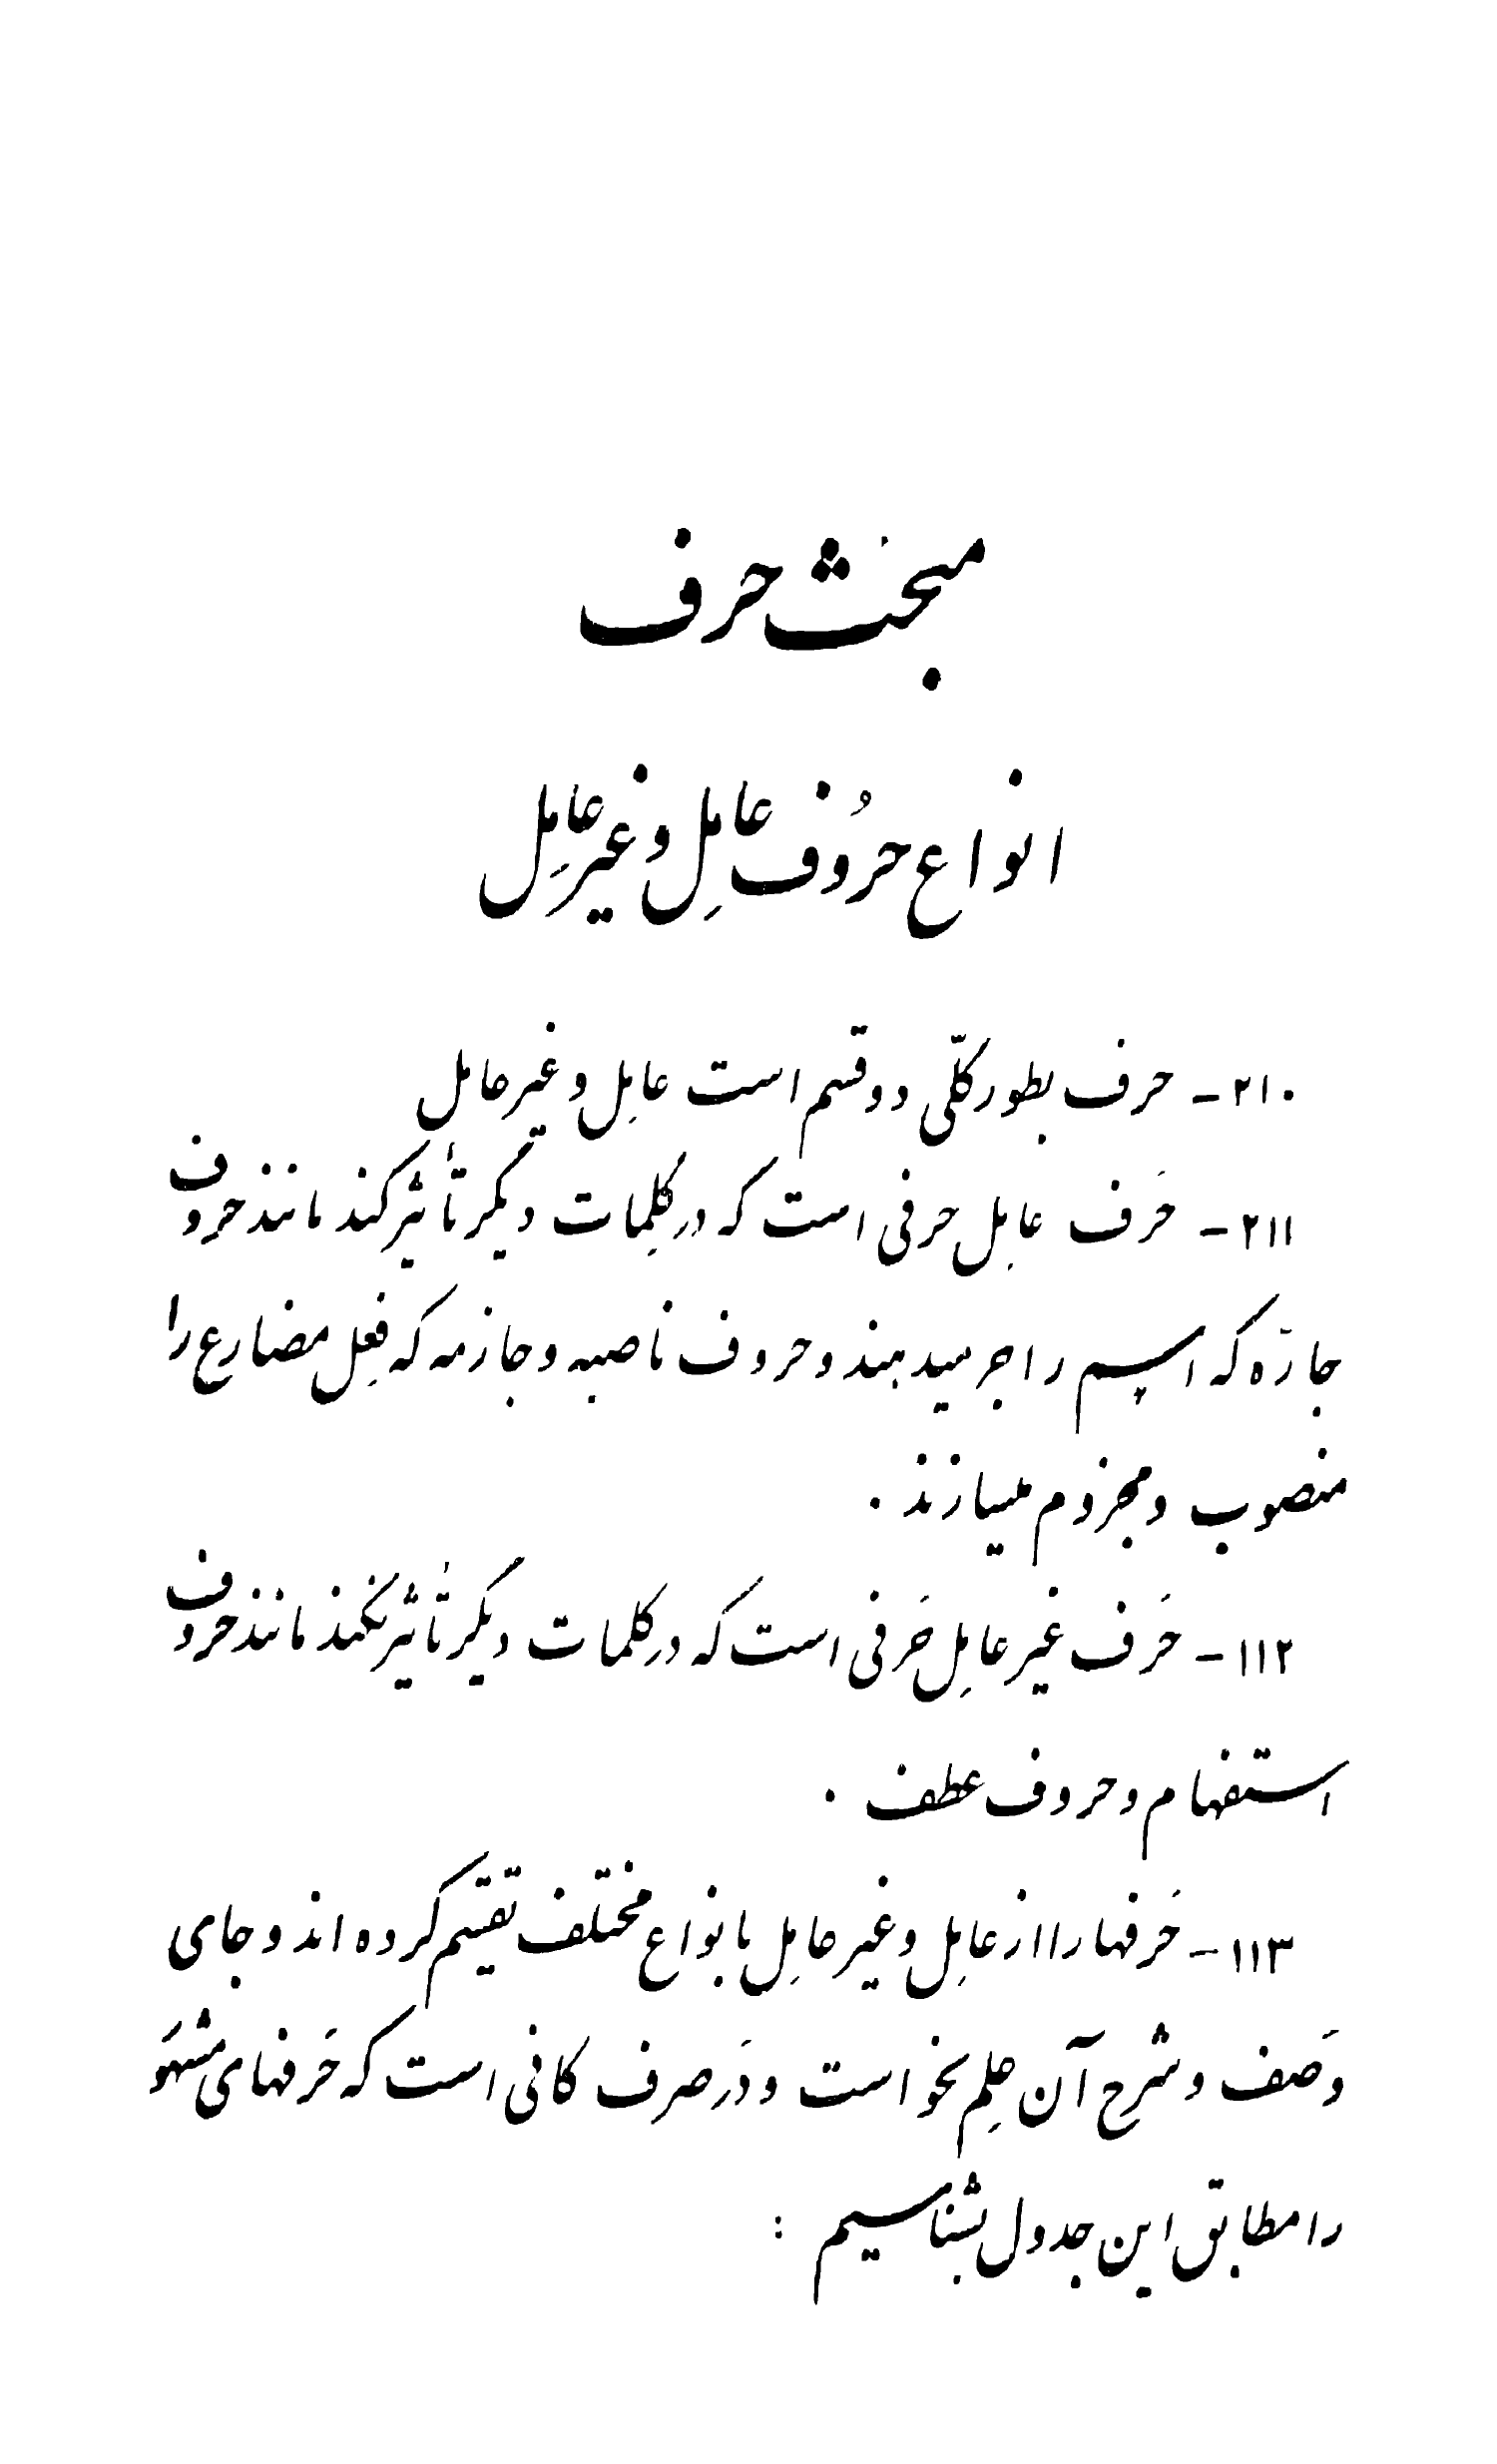 مبحث حرف
انواع حرُوف عامِل و غیرعامِل
۲۱۰- حرف بطور کلّی دو قسم است عامِل و غیرعامل
۲۱۱- حَرف عامِل حرفی است که در کلِمات دیگر تأثیر کند مانند حروف
جارَه که اسم را جر میدهند و حروف ناصبه و جازمه که فِعِل مضارع را
منصوب و مجزوم میسازند .
۱۱۲- حَرف غیرعامِل حَرفی است که در کلمات دیگر تأثیر نکند مانند حروف
استفهام و حروف عطف .
۱۱۳- حَرفها را از عامِل و غیرعامِل بانواع مختلف تقسیم کرده اند و جای
وَصف و شرح آن عِلم نحو است و دَر صرف کافی است که حَرفهای مشهَو
را مطابق این جدول بشناسیم :